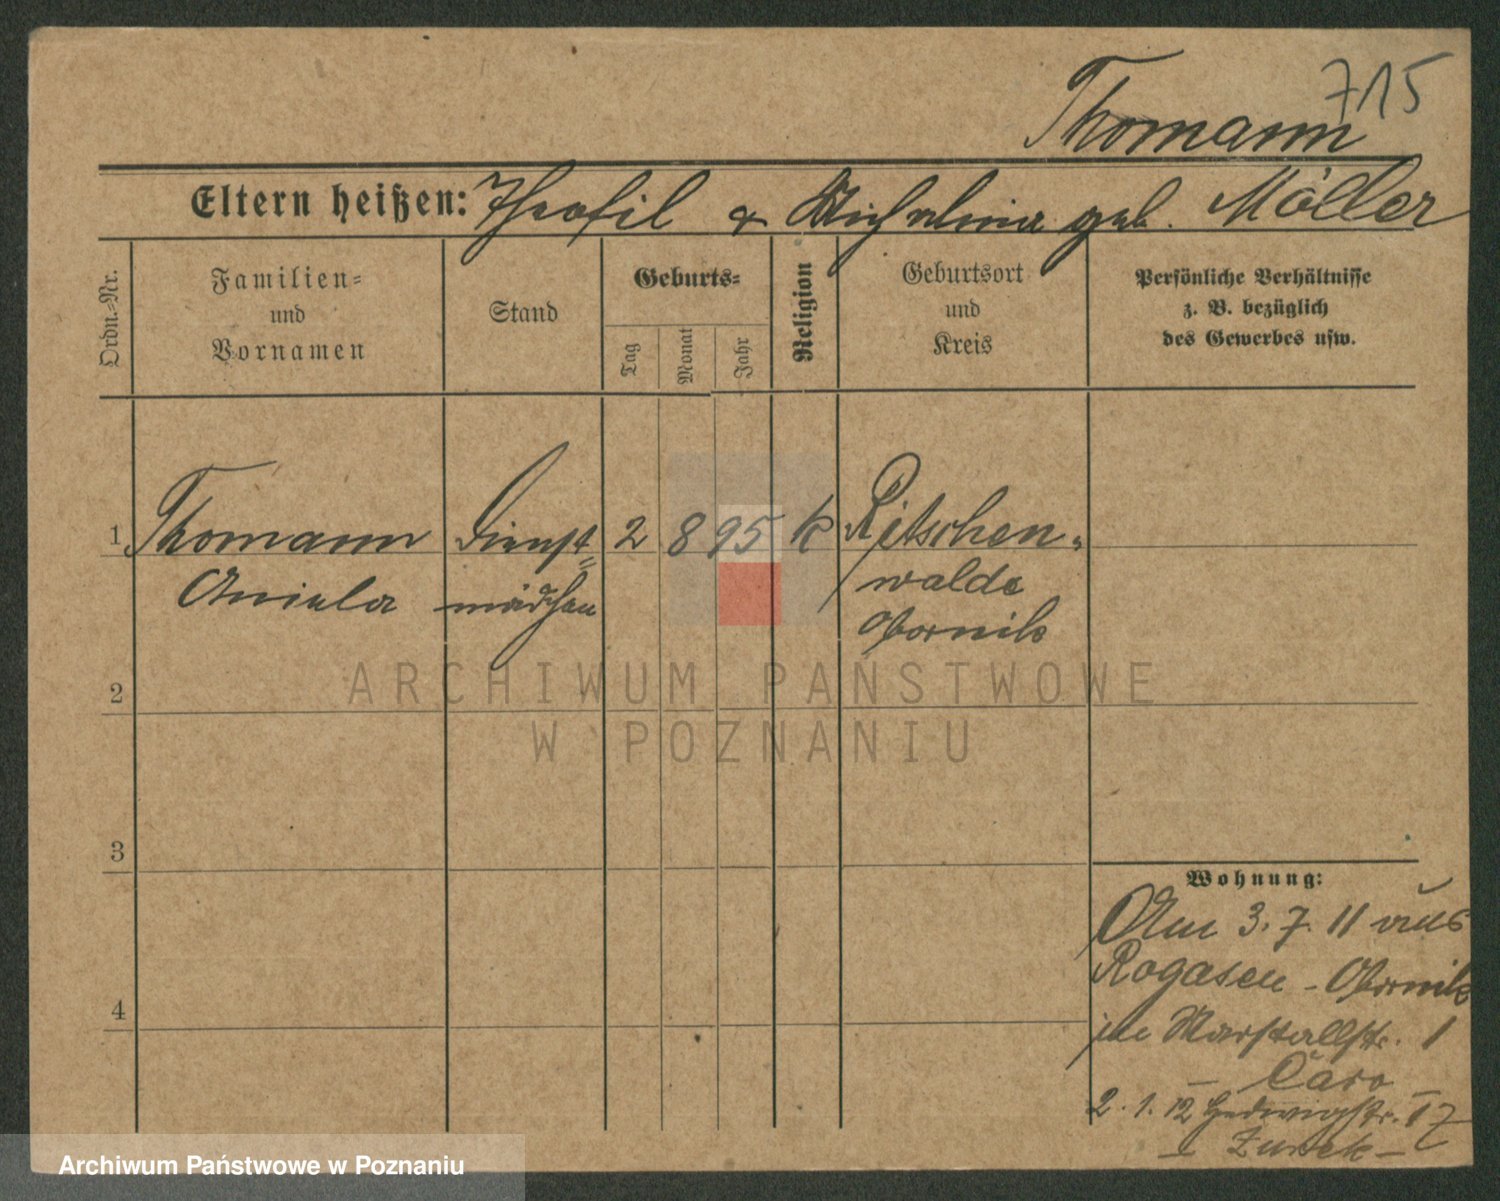 715
Thomann
Eltern heißen: Theofil & Wilhelmina geb. Möller
Ordn.-Nr.
Familien-
und
Vornamen
Stand
Geburts-
Tag
Monat
Jahr
Religion
Geburtsort
und
Kreis
Persönliche Verhältnisse
z. B. bezüglich
des Gewerbes usw.
1 Thomann Dienst= 2 8 95 k Ritschen-
Aniela mädchen walde
Obornik
2
3
4
Wohnung:
Am 3. 7. 11 aus
Rogasen - Obornik
in Marstallstr. 1
Caro
2. 1. 12 Hedwigstr. 17
- Zurek -
ARCHIWUM PAŃSTWOWE
W POZNANIU
Archiwum Państwowe w Poznaniu